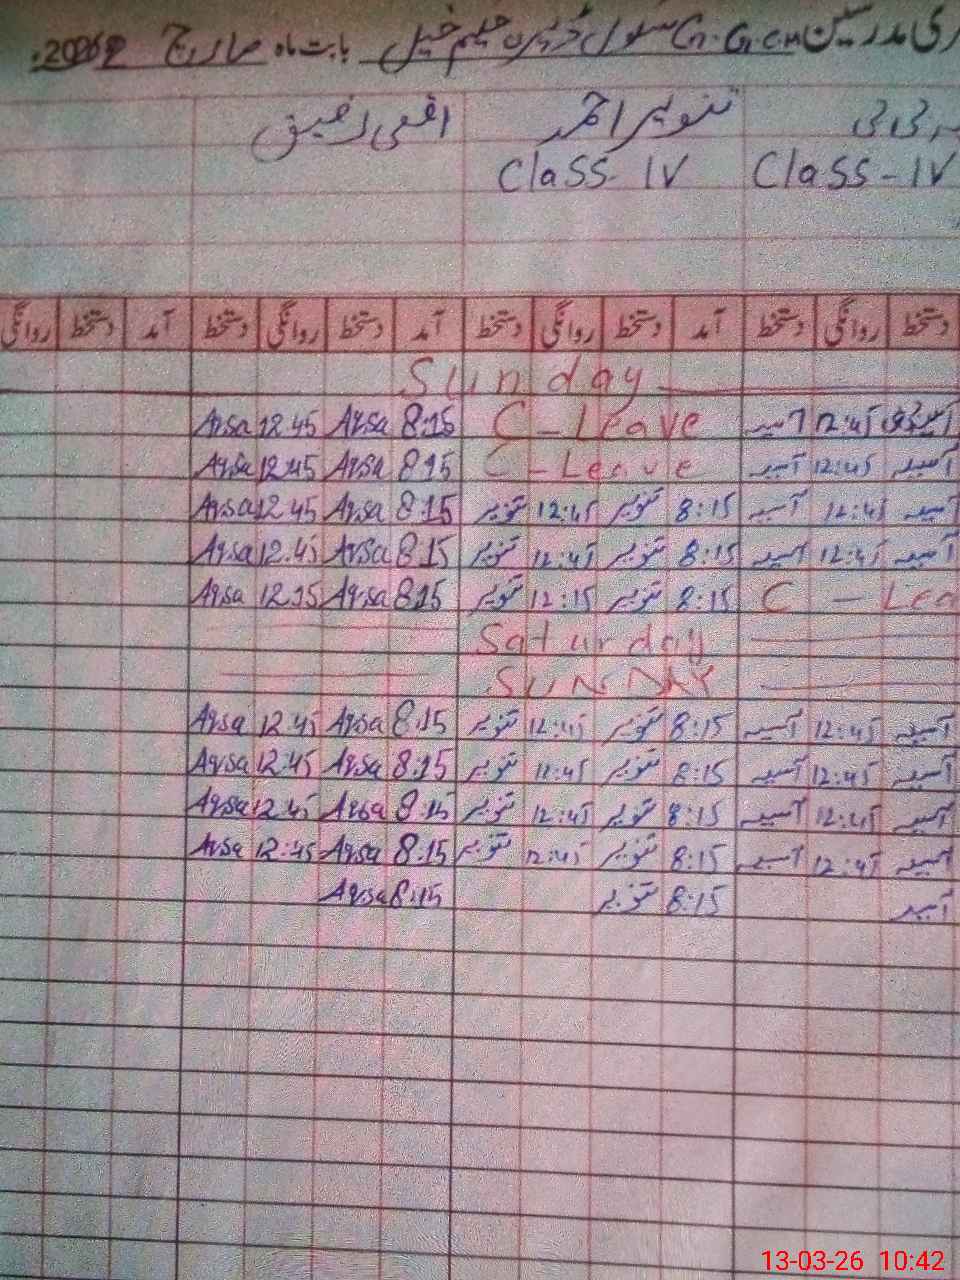 مدرسین G.G.C.M سکول ڈیرہ حلیم خیل بابت ماہ مارچ 2026ء
بی بی تنویر احمد اقصی رفیق
Class-IV Class-IV
دستخط روانگی دستخط آمد دستخط روانگی دستخط آمد دستخط روانگی دستخط آمد دستخط روانگی
Sunday
آسیہ 12:45 آسیہ C-Leave 8:15 Aqsa 12.45 Aqsa
آسیہ 12:45 آسیہ C-Leave 8:15 Aqsa 12:45 Aqsa
آسیہ 12:45 آسیہ 8:15 تنویر 12:45 تنویر 8:15 Aqsa 12.45 Aqsa
آسیہ 12:45 آسیہ 8:15 تنویر 12:45 تنویر 8:15 Aqsa 12.45 Aqsa
C - Lea 8:15 تنویر 12:15 تنویر 8:15 Aqsa 12.15 Aqsa
Saturday
SUNDAY
آسیہ 12:45 آسیہ 8:15 تنویر 12:45 تنویر 8:15 Aqsa 12.45 Aqsa
آسیہ 12:45 آسیہ 8:15 تنویر 12:45 تنویر 8:15 Aqsa 12:45 Aqsa
آسیہ 12:45 آسیہ 8:15 تنویر 12:45 تنویر 8:15 Aqsa 12.45 Aqsa
آسیہ 12:45 آسیہ 8:15 تنویر 12:45 تنویر 8.15 Aqsa 12:45 Aqsa
آسیہ 8:15 تنویر 8:15 Aqsa
13-03-26 10:42